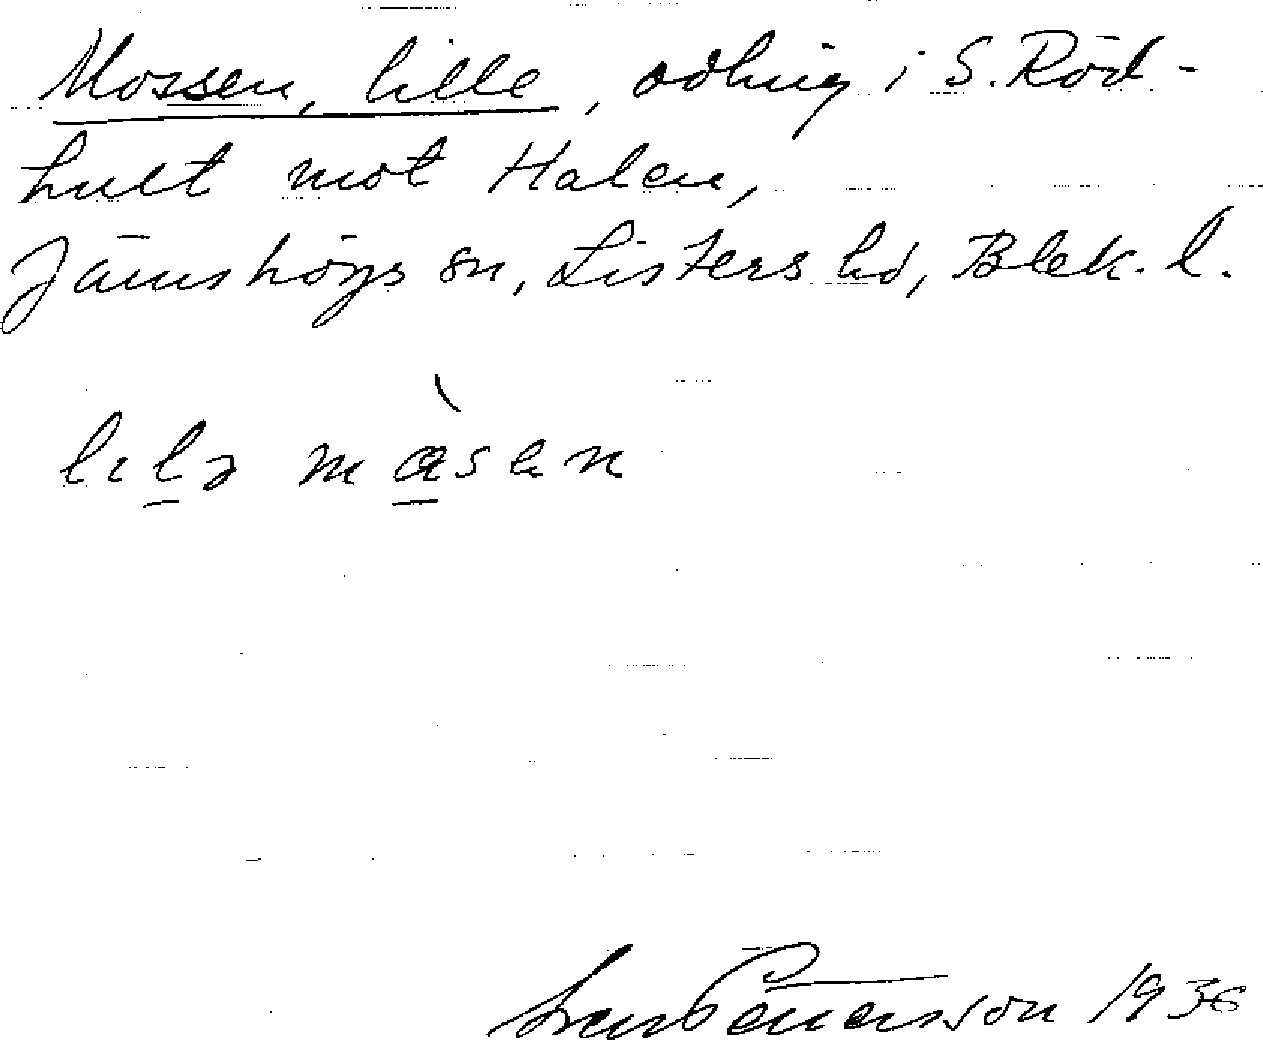 Mossen, lille, odling i S. Röd-
hult mot Halen,
Jämshögs sn, Listers hd, Blek. l.
lilə måsen
Sven Petersson 1936